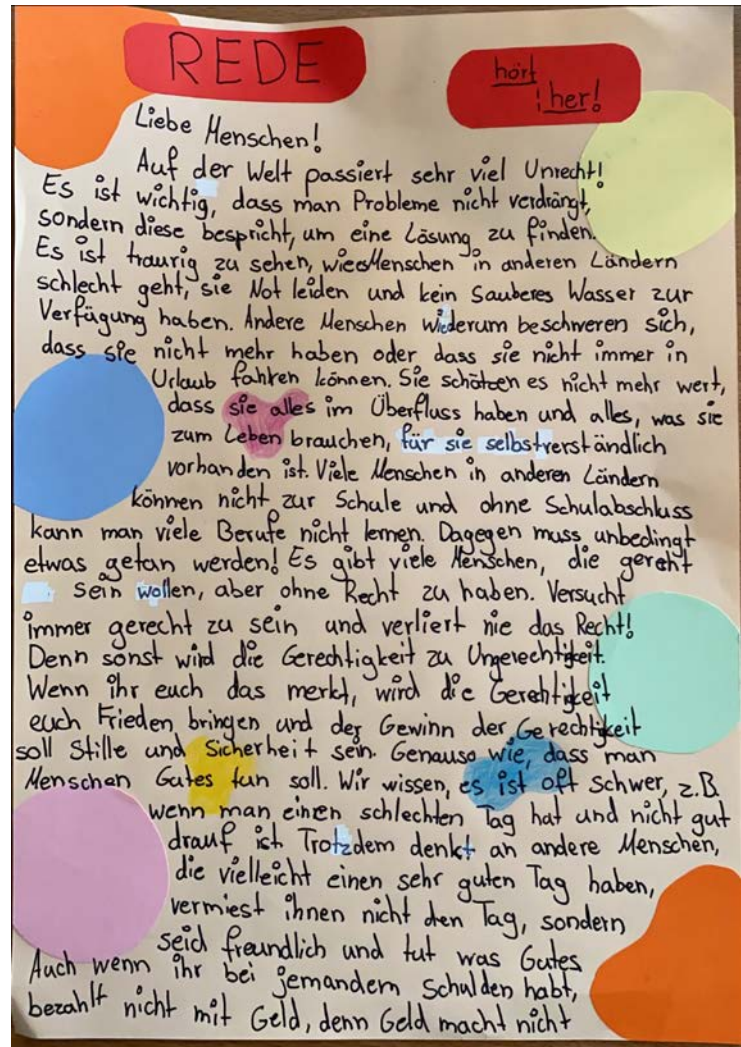 REDE
hört
ihr her!
Liebe Menschen!
Auf der Welt passiert sehr viel Unrecht!
Es ist wichtig, dass man Probleme nicht verdrängt,
sondern diese bespricht, um eine Lösung zu finden.
Es ist traurig zu sehen, wie es Menschen in anderen Ländern
schlecht geht, sie Not leiden und kein Sauberes Wasser zur
Verfügung haben. Andere Menschen wiederum beschweren sich,
dass sie nicht mehr haben oder dass sie nicht immer in
Urlaub fahren können. Sie schätzen es nicht mehr wert,
dass sie alles im Überfluss haben und alles, was sie
zum Leben brauchen, für sie selbstverständlich
vorhanden ist. Viele Menschen in anderen Ländern
können nicht zur Schule und ohne Schulabschluss
kann man viele Berufe nicht lernen. Dagegen muss unbedingt
etwas getan werden! Es gibt viele Menschen, die gereht
sein wollen, aber ohne Recht zu haben. Versucht
immer gerecht zu sein und verliert nie das Recht!
Denn sonst wird die Gerechtigkeit zu Ungerechtigkeit.
Wenn ihr euch das merkt, wird die Gerehtigkeit
euch Frieden bringen und der Gewinn der Gerechtigkeit
soll Stille und Sicherheit sein. Genauso wie, dass man
Menschen Gutes tun soll. Wir wissen, es ist oft schwer, z.B.
wenn man einen schlechten Tag hat und nicht gut
drauf ist Trotzdem denkt an andere Menschen,
die vielleicht einen sehr guten Tag haben,
vermiest ihnen nicht den Tag, sondern
seid freundlich und tut was Gutes
Auch wenn ihr bei jemandem Schulden habt,
bezahlt nicht mit Geld, denn Geld macht nicht